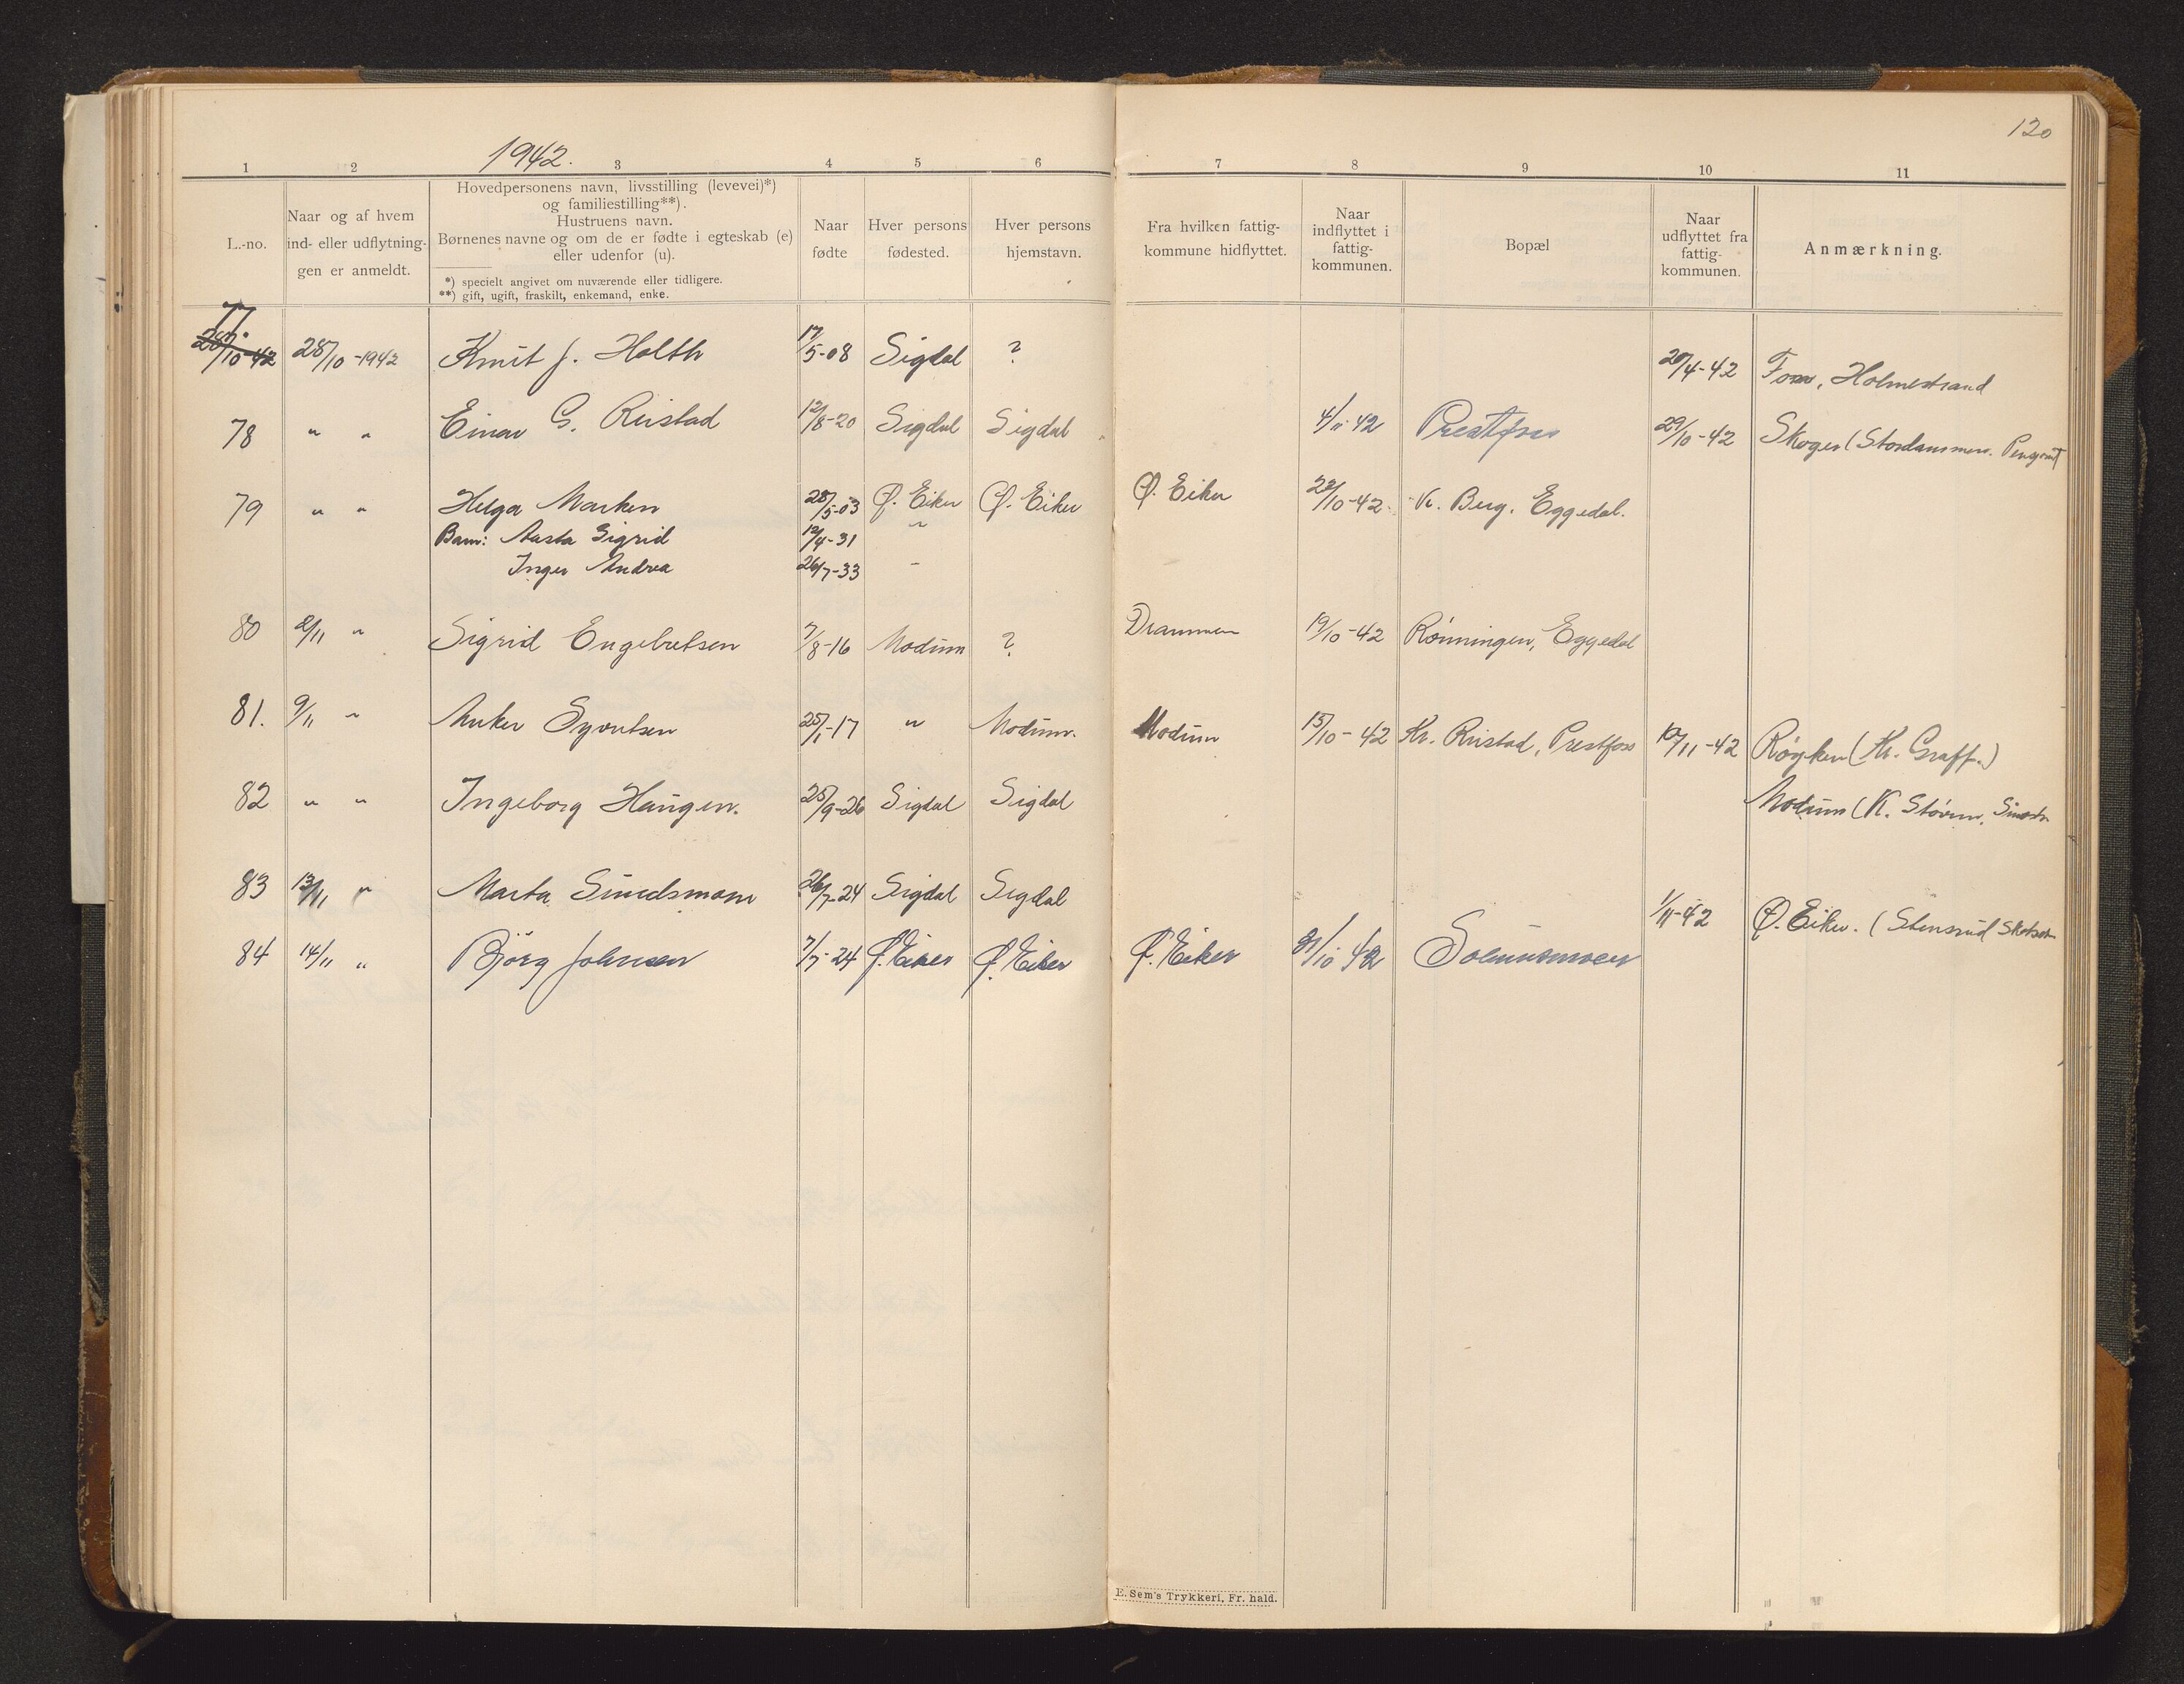 120
1942.
1 2 3 4 5 6 7 8 9 10 11
L.-no.
Naar og af hvem
ind- eller udflytning-
gen er anmeldt.
Hovedpersonens navn, livsstilling (levevei)*)
og familiestilling**).
Hustruens navn.
Børnenes navne og om de er fødte i egteskab (e)
eller udenfor (u).
*) specielt angivet om nuværende eller tidligere.
**) gift, ugift, fraskilt, enkemand, enke.
Naar
fødte
Hver persons
fødested.
Hver persons
hjemstavn.
Fra hvilken fattig-
kommune hidflyttet.
Naar
indflyttet i
fattig-
kommunen.
Bopæl
Naar
udflyttet fra
fattig-
kommunen.
Anmærkning.
77 28/10-42 28/10-1942 Knut J. Holth 17/5-08 Sigdal ? 20/4-42 Holmestrand
78 " " Einar G. Ristad 12/8-20 Sigdal Sigdal 4/11 42 Prestfoss 29/10-42 Skoger (
79 " " Helga Marken 28/5-03 Ø. Eiker Ø. Eiker Ø. Eiker 22/10-42 Berg. Eggedal.
Barn: Aasta Sigrid 12/4-31 "
Inger Andrea 26/7-33 -
80 2/11 " Sigrid Engebretsen 7/8-16 Modum ? Drammen 19/10-42 Rønningen, Eggedal
81. 9/11 " Anker Syvertsen 25/1-17 " Modum. Modum 15/10-42 Kr. Ristad, Prestfoss 10/11-42 Røyken (Kr. Graff.)
82 " " Ingeborg Haugen. 25/9-26 Sigdal Sigdal Modum (K. Støvern,
83 13/11 " Marta Sundsmoen 26/7-24 Sigdal Sigdal 1/11-42 Ø. Eiker. (Stensrud
84 14/11 " Bjørg Johnsen 7/7-24 Ø. Eiker Ø. Eiker Ø. Eiker 31/10 42 Solumsmoen
E. Sem's Trykkeri, Fr. hald.